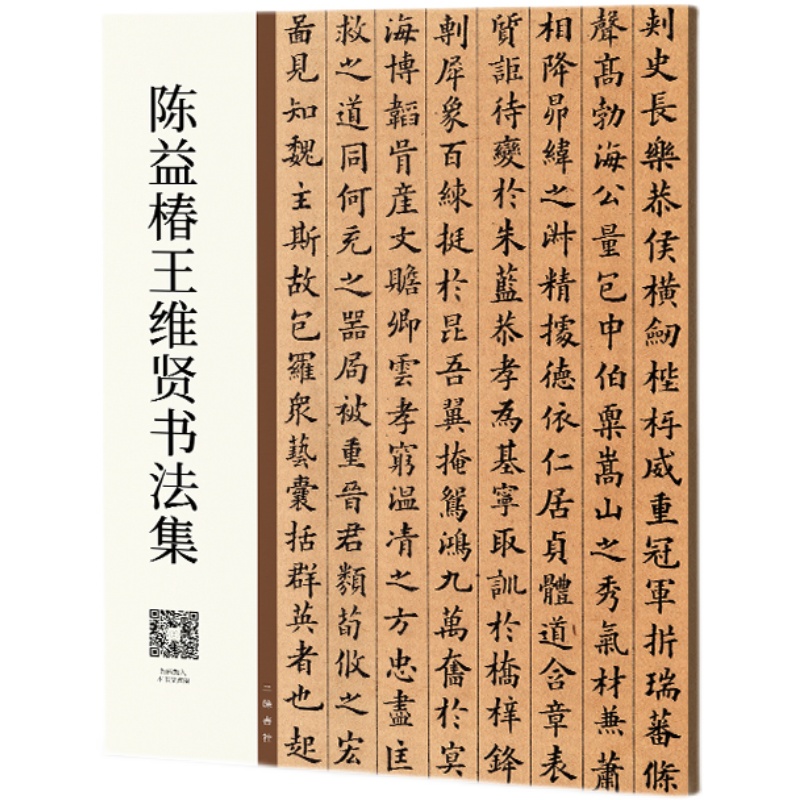 陈益椿王维贤书法集
刾史長樂恭侯橫劒梐枑威重冠軍折瑞蕃條
聲髙勃海公量包申伯稟嵩山之秀氣材兼蕭
相降昴緯之淑精據德依仁居貞體道含章表
質詎待變於朱藍恭孝為基寧取訓於橋梓鋒
剸犀象百練挺於昆吾翼掩鴛鴻九萬奮於㝠
海博韜胷産文贍卿雲孝窮温凊之方忠盡匡
救之道同何充之器局被重晉君類荀攸之宏
啚見知魏主斯故包羅衆藝囊括群英者也起